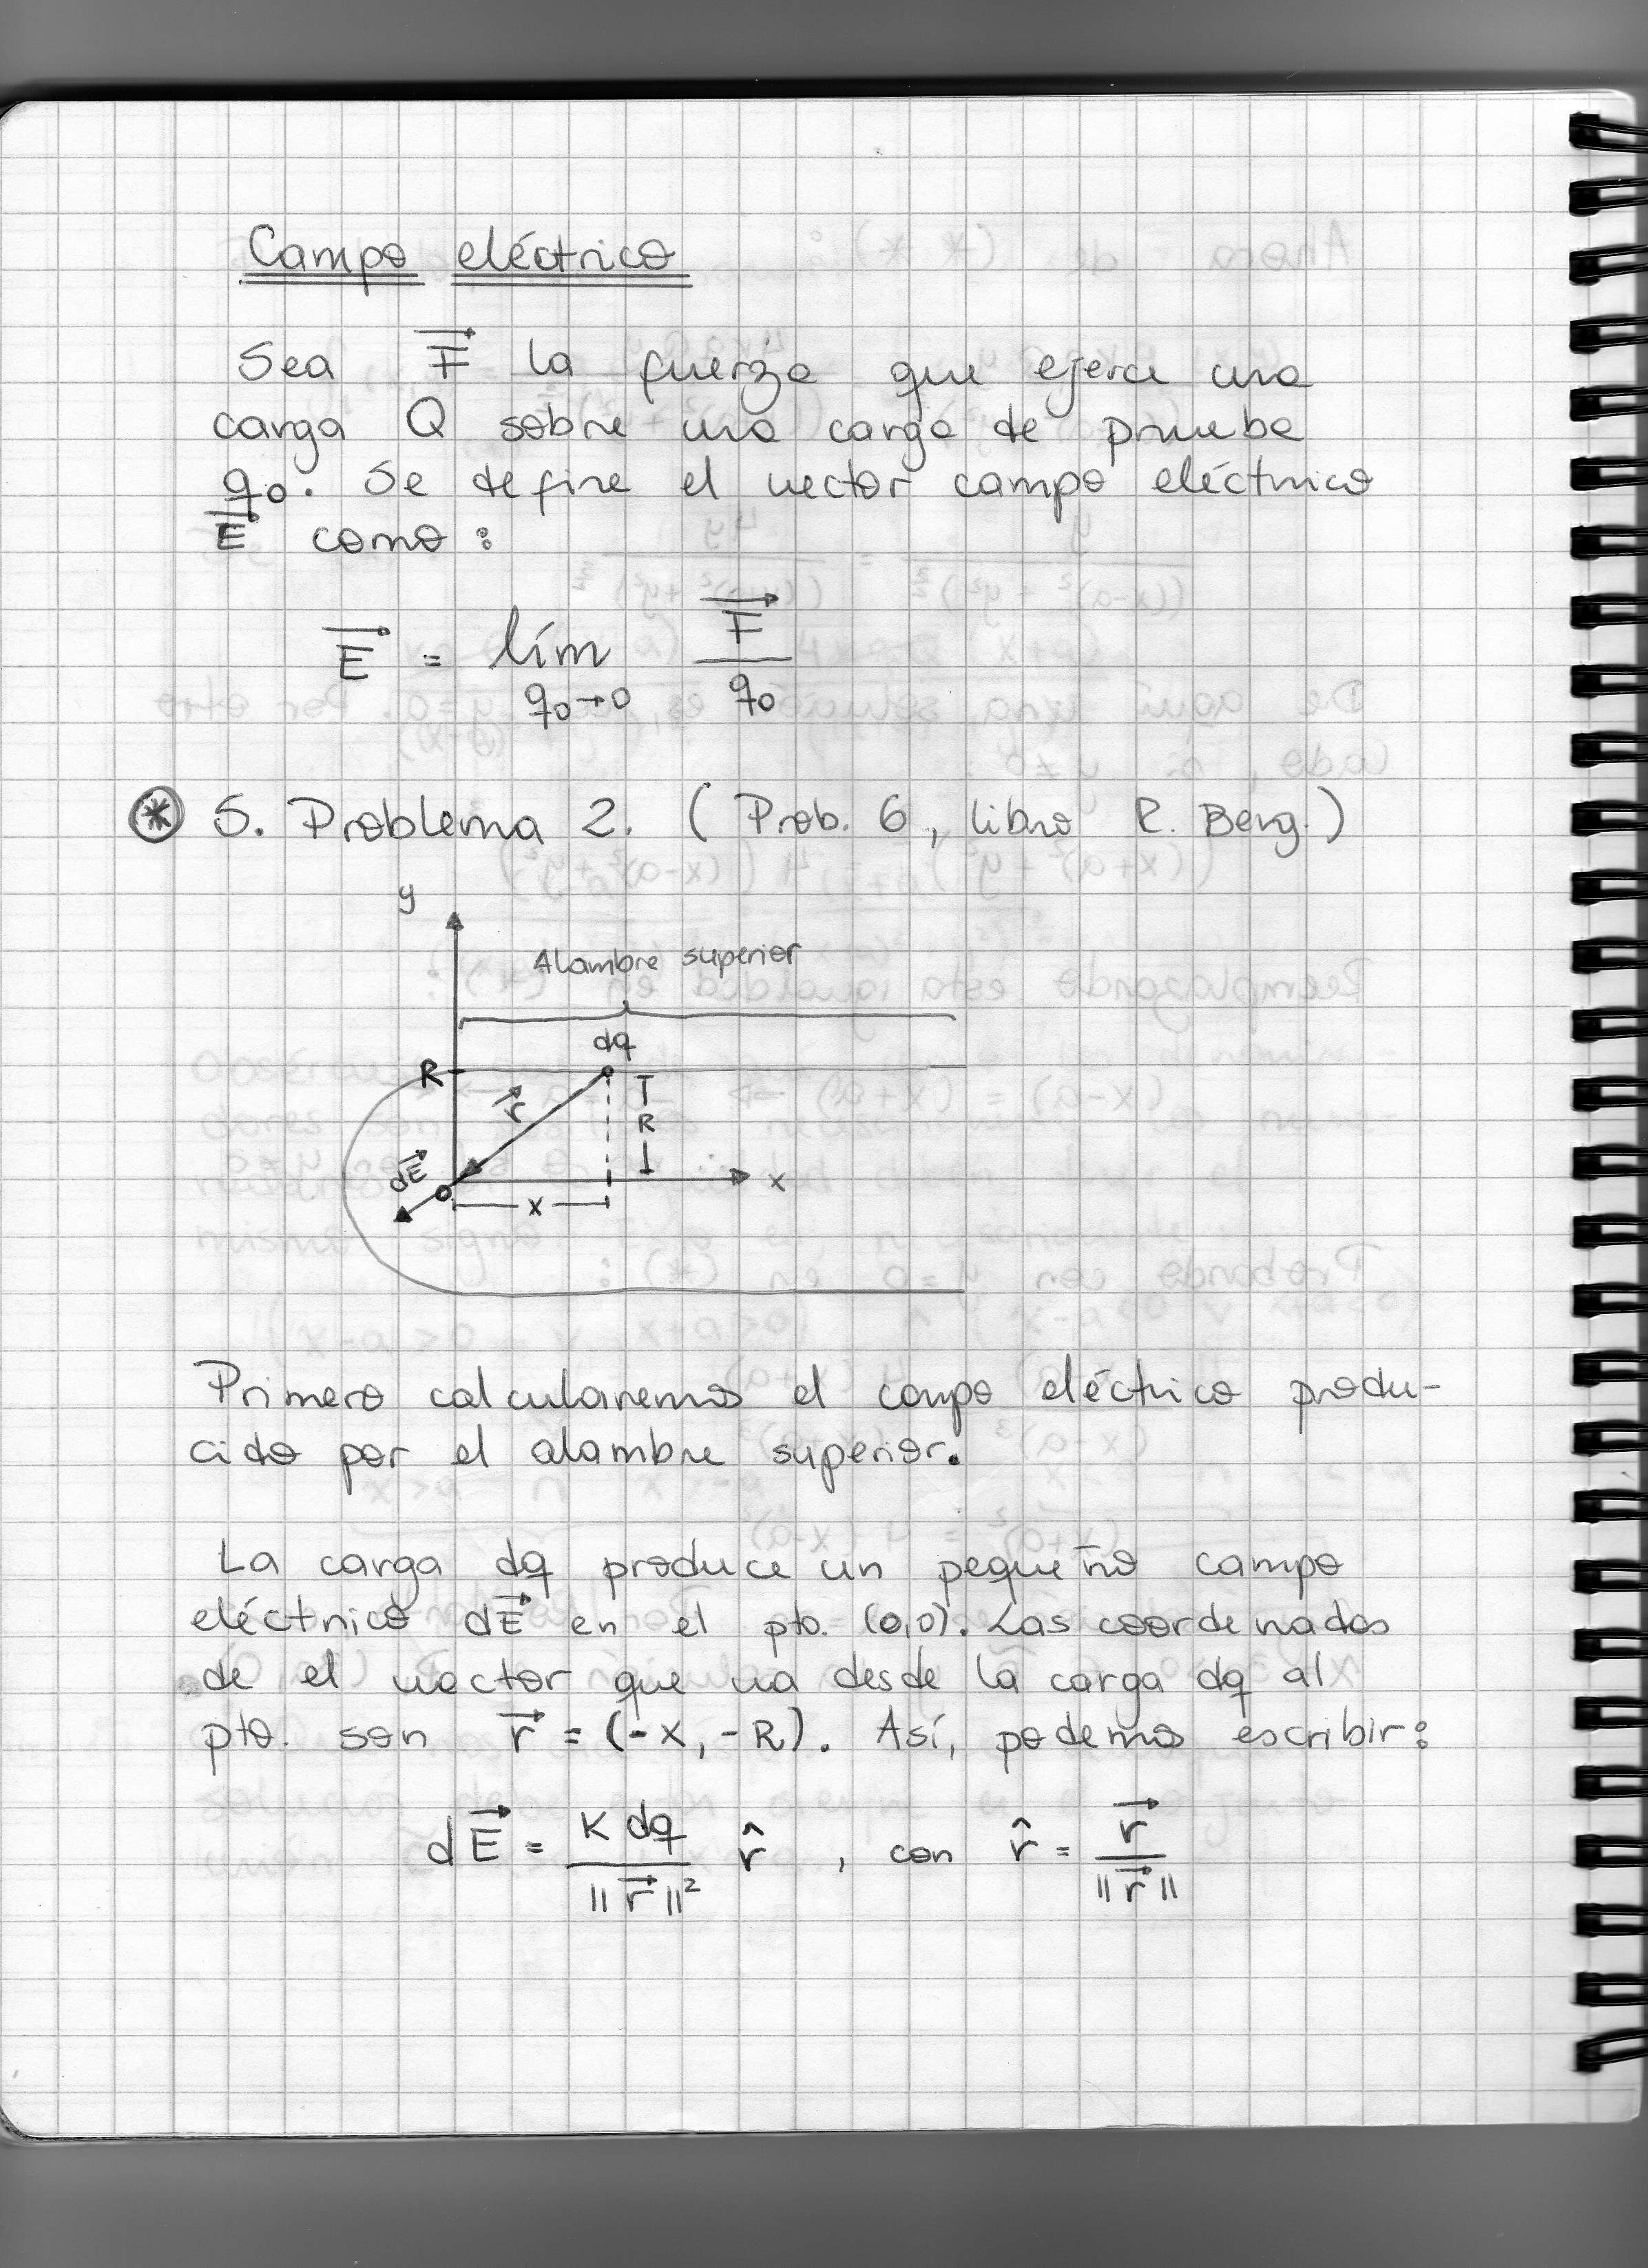 Campo eléctrico
Sea F⃗ la fuerza que ejerce una
carga Q sobre una carga de prueba
q₀. Se define el vector campo eléctrico
E⃗ como:
E⃗ = lím_{q₀→0} F⃗/q₀
* 5. Problema 2. (Prob. 6, libro R. Berg.)
y
Alambre superior
dq
R
r⃗
R
dE⃗
0
x
x
Primero calcularemos el campo eléctrico produ-
cido por el alambre superior.
La carga dq produce un pequeño campo
eléctrico dE⃗ en el pto. (0,0). Las coordenadas
de el vector que va desde la carga dq al
pto. son r⃗ = (-x, -R). Así, podemos escribir:
dE⃗ = K dq/||r⃗||² r̂ , con r̂ = r⃗/||r⃗||